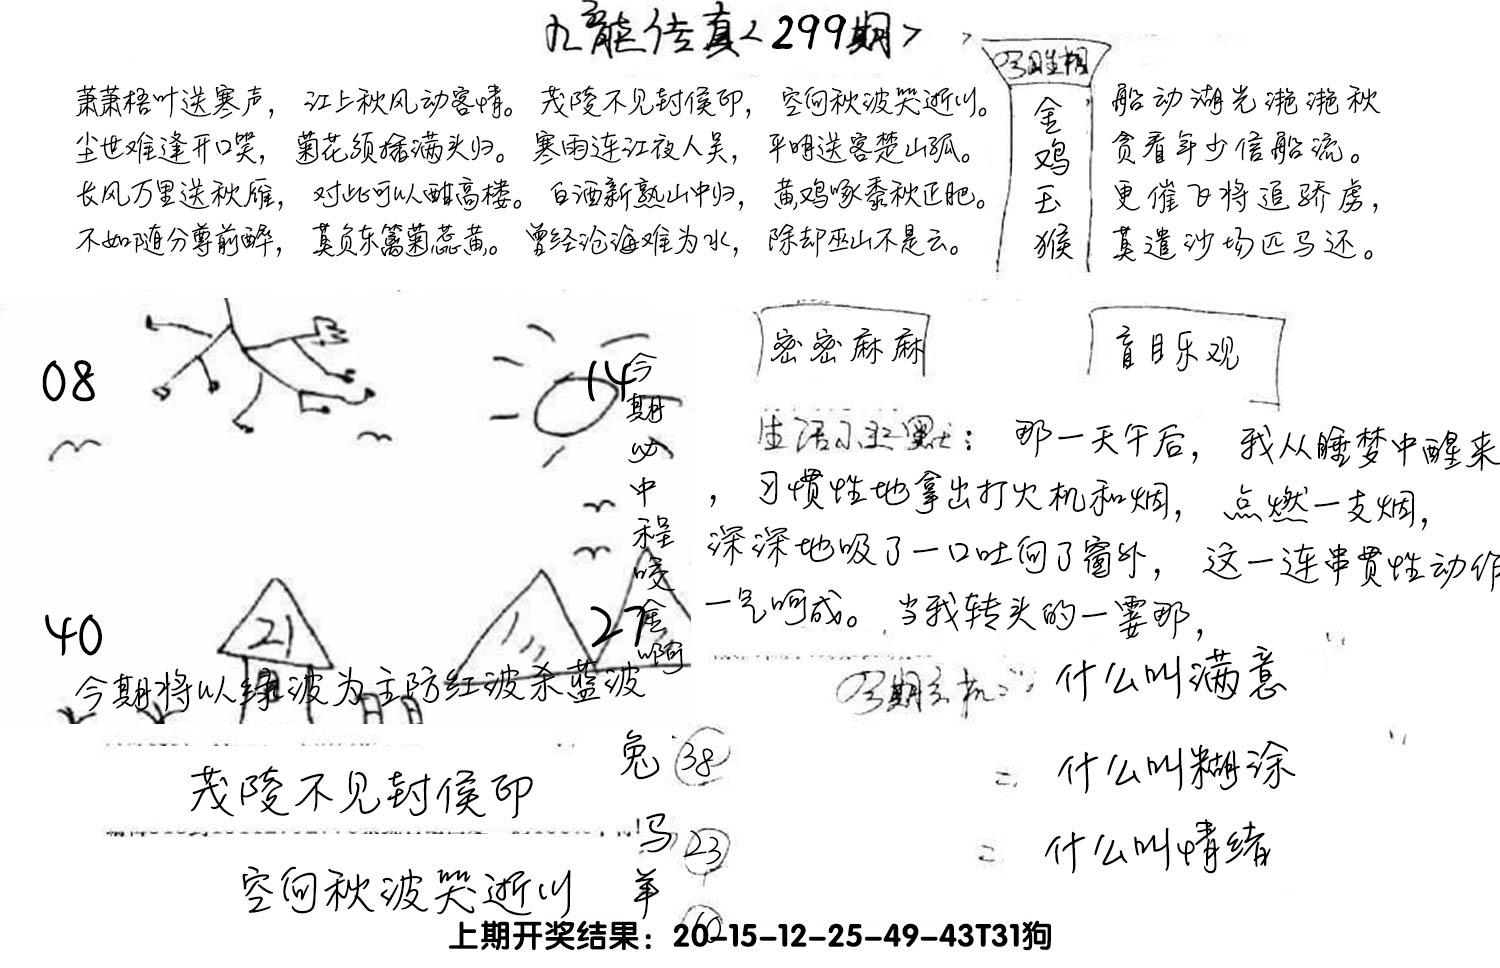 九龙传真<299期>
萧萧梧叶送寒声，江上秋风动客情。茂陵不见封侯印，空向秋波哭逝川。
尘世难逢开口笑，菊花须插满头归。寒雨连江夜入吴，平明送客楚山孤。
长风万里送秋雁，对此可以酣高楼。白酒新熟山中归，黄鸡啄黍秋正肥。
不如随分尊前醉，莫负东篱菊蕊黄。曾经沧海难为水，除却巫山不是云。
金鸡玉猴
船动湖光滟滟秋
贪看年少信船流。
更催飞将追骄虏，
莫遣沙场匹马还。
08
14
40
21
27
今期必中程咬金啊
今期将以绿波为主防红波杀蓝波
密密麻麻
盲目乐观
生活小幽默：那一天午后，我从睡梦中醒来
，习惯性地拿出打火机和烟，点燃一支烟，
深深地吸了一口吐向了窗外，这一连串贯性动作
一气呵成。当我转头的一霎那，
今期玄机：什么叫满意
= 什么叫糊涂
= 什么叫情绪
茂陵不见封侯印
空向秋波哭逝川
兔 38
马 23
羊
上期开奖结果：20-15-12-25-49-43T31狗